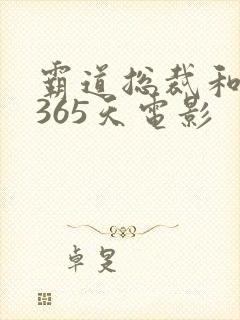 霸道总裁和
365天电影
卓旻